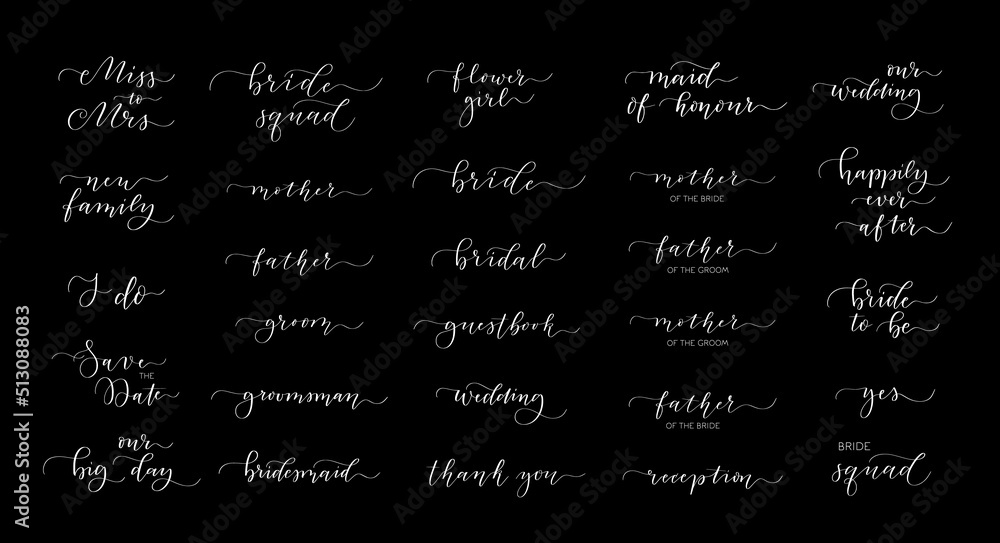 Miss
to
Mrs
new
family
I do
Save
THE
Date
our
big day
bride
squad
mother
father
groom
groomsman
bridesmaid
flower
girl
bride
bridal
guestbook
wedding
thank you
maid
of honour
mother
OF THE BRIDE
father
OF THE GROOM
mother
OF THE GROOM
father
OF THE BRIDE
reception
our
wedding
happily
ever
after
bride
to be
yes
BRIDE
squad
Adobe Stock | #513088083